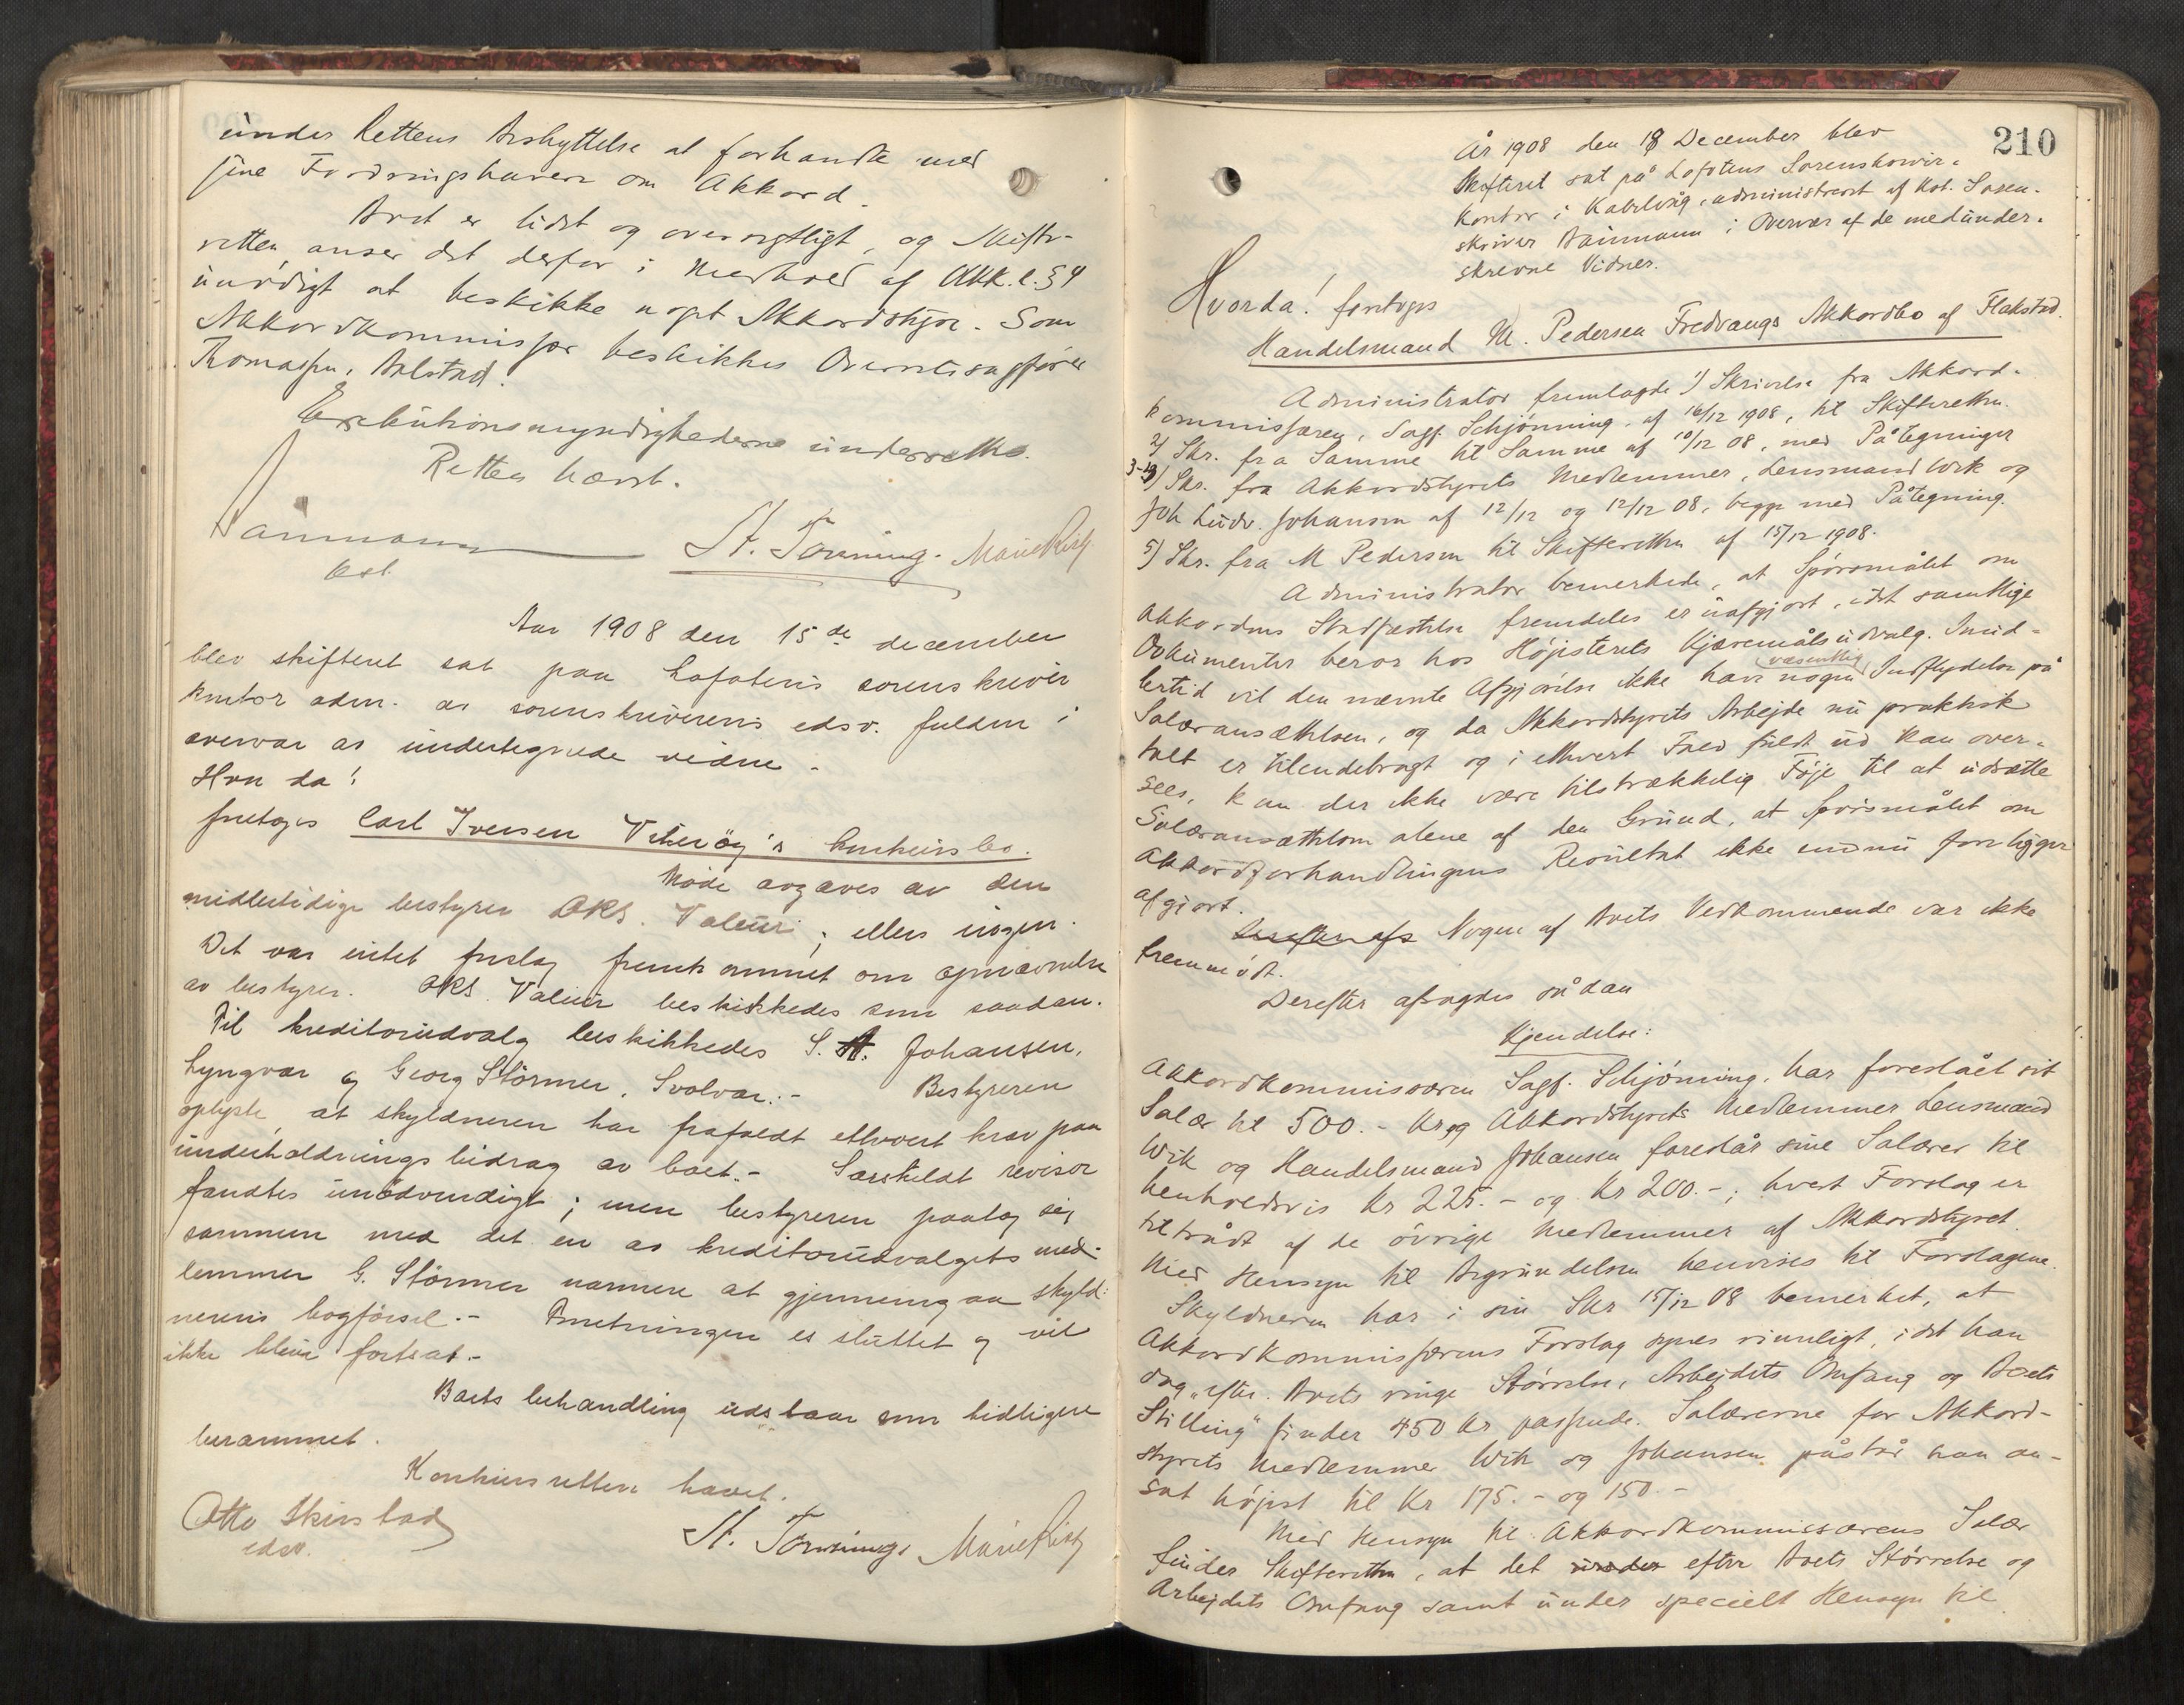 under Rettens Beskyttelse at forhandle med
sine Fordringshavere om Akkord.
Boet er lidet og oversigtligt, og Skifte-
retten anser det derfor i Medhold af Akk.l. § 4
unødigt at beskikke noget Akkordstyre. Som
Akkordkommissær beskikkes Overretssagfører
Thomassen, Balstad.
Exekutionsmyndighederne underrettes.
Retten hævet.
Kst.
St. Tønning. Marie Risch
Aar 1908 den 15de december
blev skifteret sat paa Lofotens sorenskriver
kontor adm. av sorenskriverens edsv. fuldm i
overvær av undertegnede vidne -
Hvor da!
foretoges Carl Iversen konkursbo.
Møde avgaves av den
midlertidige bestyrer ORS. Valeur; ellers ingen.
Det var intet forslag fremkommet om opnævnelse
av bestyrer. ORS. Valeur beskikkedes som saadan.
Til kreditorudvalg beskikkedes S. A. Johansen,
Lyngvær og Georg Störmer, Svolvær.- Bestyreren
oplyste, at skyldneren har frafaldt ethvert krav paa
underholdningsbidrag av boet.- Særskildt revisor
fandtes unødvendigt; men bestyreren paatog sig
sammen med det en av kreditorudvalgets med-
lemmer G. Störmer nærmere at gjennemgaa skyld-
nerens bogførsel.- Forretningen er sluttet og vil
ikke bleven fortsat.-
Boets behandling udstaar som tidligere
berammet.
Konkursretten hævet.
Otto Skirstad
edsv.
St. Tønning. Marie Risch
210
År 1908 den 18 December blev
Skifteret sat på Lofotens Sorenskriver-
kontor i Kabelvåg, administreret af Kst. Soren-
skriver i Overvær af de medunder-
skrevne Vidner.
Hvorda! foretoges
Handelsmand M. Pedersen Fredvangs Akkordbo af Flakstad.
Administrator fremlagde 1) Skrivelse fra Akkord-
kommissæren, Sagf. Schjönning, af 16/12 1908, til Skifteretten.
2) Skr. fra Samme til Samme af 10/12 08, med Påtegninger
3-4) Skr. fra Akkordstyrets Medlemmer, Lensmand Wik og
Joh Ludv. Johansen af 12/12 og 12/12 08, begge med Påtegning
5) Skr. fra M Pedersen til Skifteretten af 15/12 1908.
Administrator bemerkede, at Spörsmålet om
Akkordens Stadfæstelse fremdeles er uafgjort, idet samtlige
Dokumenter beror hos Höjesterets Kjæremålsudvalg. Imid-
lertid vil den nævnte Afgjörelse ikke have nogen væsentlig Indflydelse på
Salæransættelsen, og da Akkordstyrets Arbejde nu praktisk
talt er tilendebragt og i ethvert Fald fuldt ud kan over-
sees, kan der ikke være tilstrækkelig Föje til at udsætte
Salæransættelsen alene af den Grund, at Spörsmålet om
Akkordforhandlingens Resultat ikke endnu foreligger
afgjort.
Nogen af Boets Vedkommende var ikke
fremmödt.
Derefter afsagdes sådan
Kjendelse:
Akkordkommissæren Sagf. Schjönning, har foreslået sit
Salær til 500.- Kr og Akkordstyrets Medlemmer Lensmand
Wik og Handelsmand Johansen foreslår sine Salærer til
henholdsvis Kr 225.- og Kr 200.-; hvert Forslag er
tiltrådt af de övrige Medlemmer af Akkordstyret.
Med Hensyn til Begrundelsen henvises til Forslagene.
Skyldneren har i sin Skr 15/12 08 bemerket, at
Akkordkommissærens Forslag synes rimeligt, idet han
dog "efter Boets ringe Störrelse, Arbejdets Omfang og Boets
Stilling" finder 450 Kr passende. Salærerne for Akkord-
styrets Medlemmer Wik og Johansen påstår han an-
sat höjest til Kr 175.- og 150.-
Med Hensyn til Akkordkommissærens Salær
finder Skifteretten, at det under efter Boets Störrelse og
Arbejdets Omfang samt under specielt Hensyn til